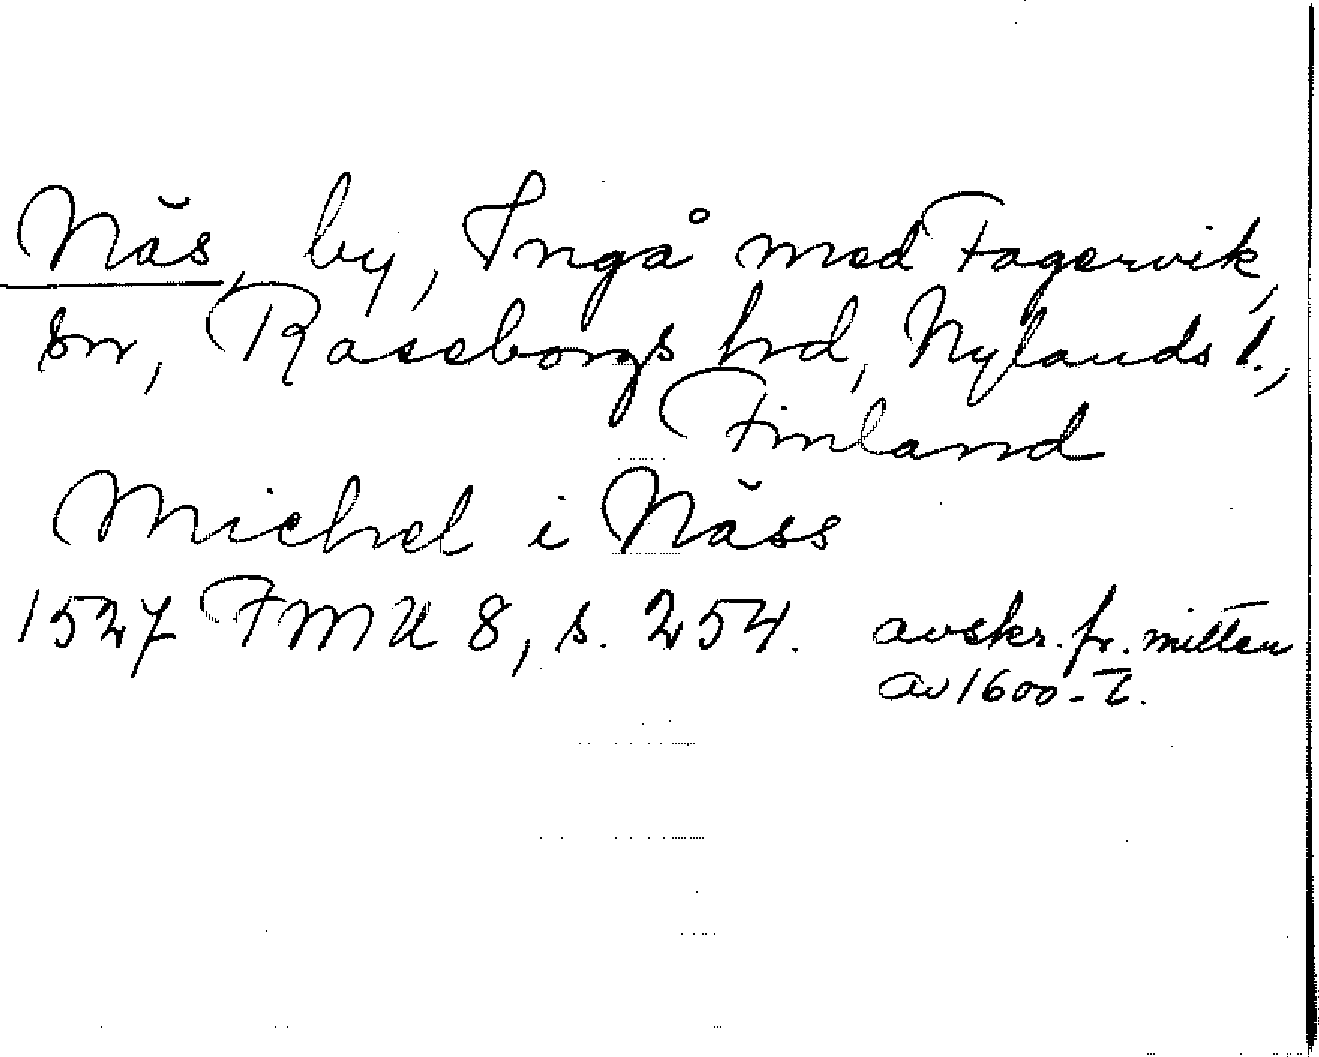 Näs, by, Ingå med Fagervik,
sn, Raseborgs hrd, Nylands l.,
Finland
Michel i Näss
1527 FMU 8, s. 254. avskr. fr. mitten
av 1600-t.